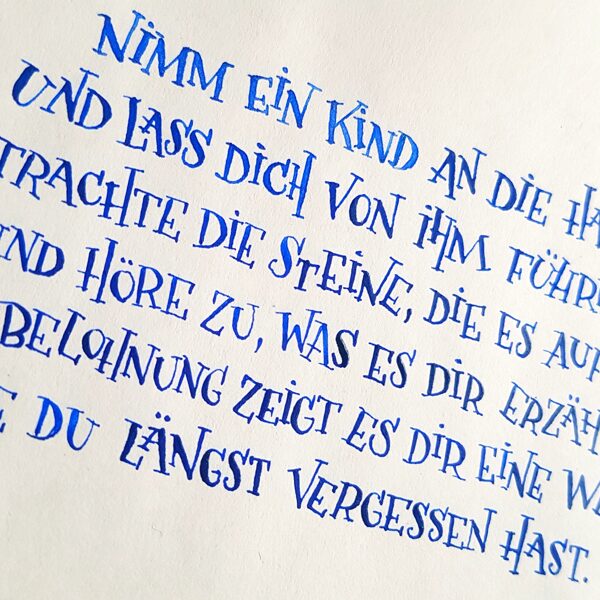 NIMM EIN KIND AN DIE HA
UND LASS DICH VON IHM FÜHR
TRACHTE DIE STEINE, DIE ES AUF
ND HÖRE ZU, WAS ES DIR ERZÄH
BELOHNUNG ZEIGT ES DIR EINE W
E DU LÄNGST VERGESSEN HAST.